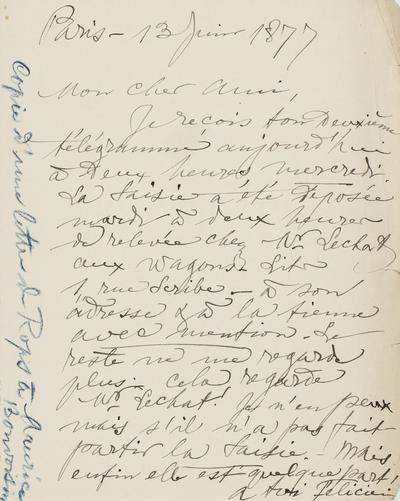 Paris - 13 Juin 1877
Mon cher Ami,
Je reçois ton deuxième
télégramme aujourd'hui
à deux heures mercredi.
La Saisie a été déposée
mardi à deux heures
de relevée chez Mr Lechat
aux Wagons-Lits
1, rue Scribe - à son
adresse & à la tienne
avec mention. Le
reste ne me regarde
plus. cela regarde
Mr Lechat! Je n'en peux
mais s'il n'a pas fait
partir la Saisie. - Mais
enfin elle est quelque part!
à toi Félicien
Copie d'une lettre de Rops à Maurice
Bonvoisin